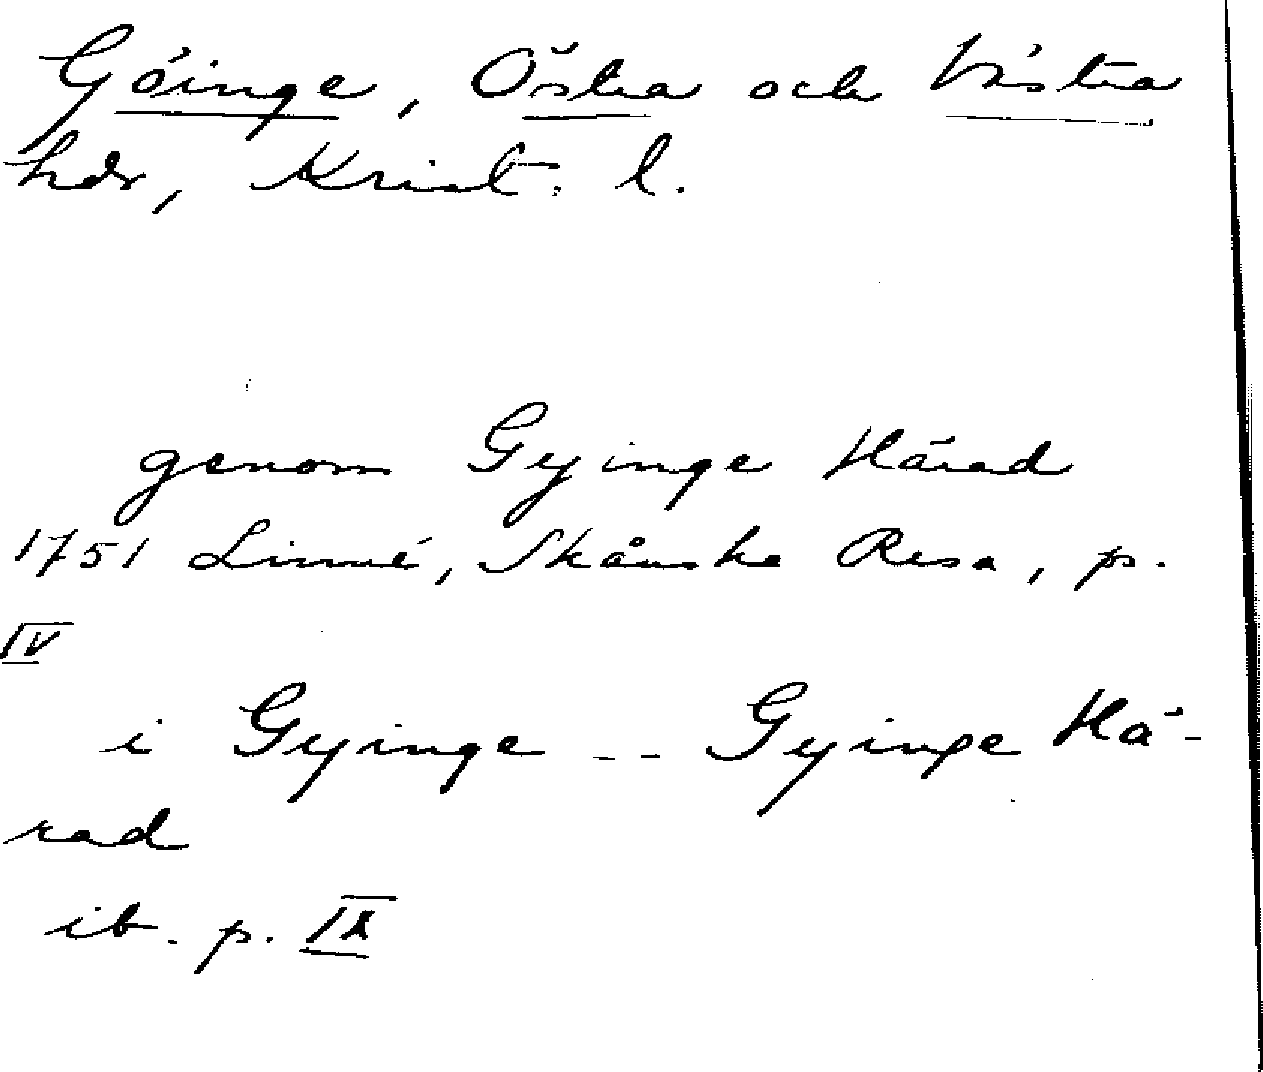 Göinge, Östra och Västra
hdr, Krist. l.
genom Gyinge Härad
1751 Linné, Skånska Resa, p.
IV
i Gyinge -- Gyinge Hä-
rad
ib. p. IX